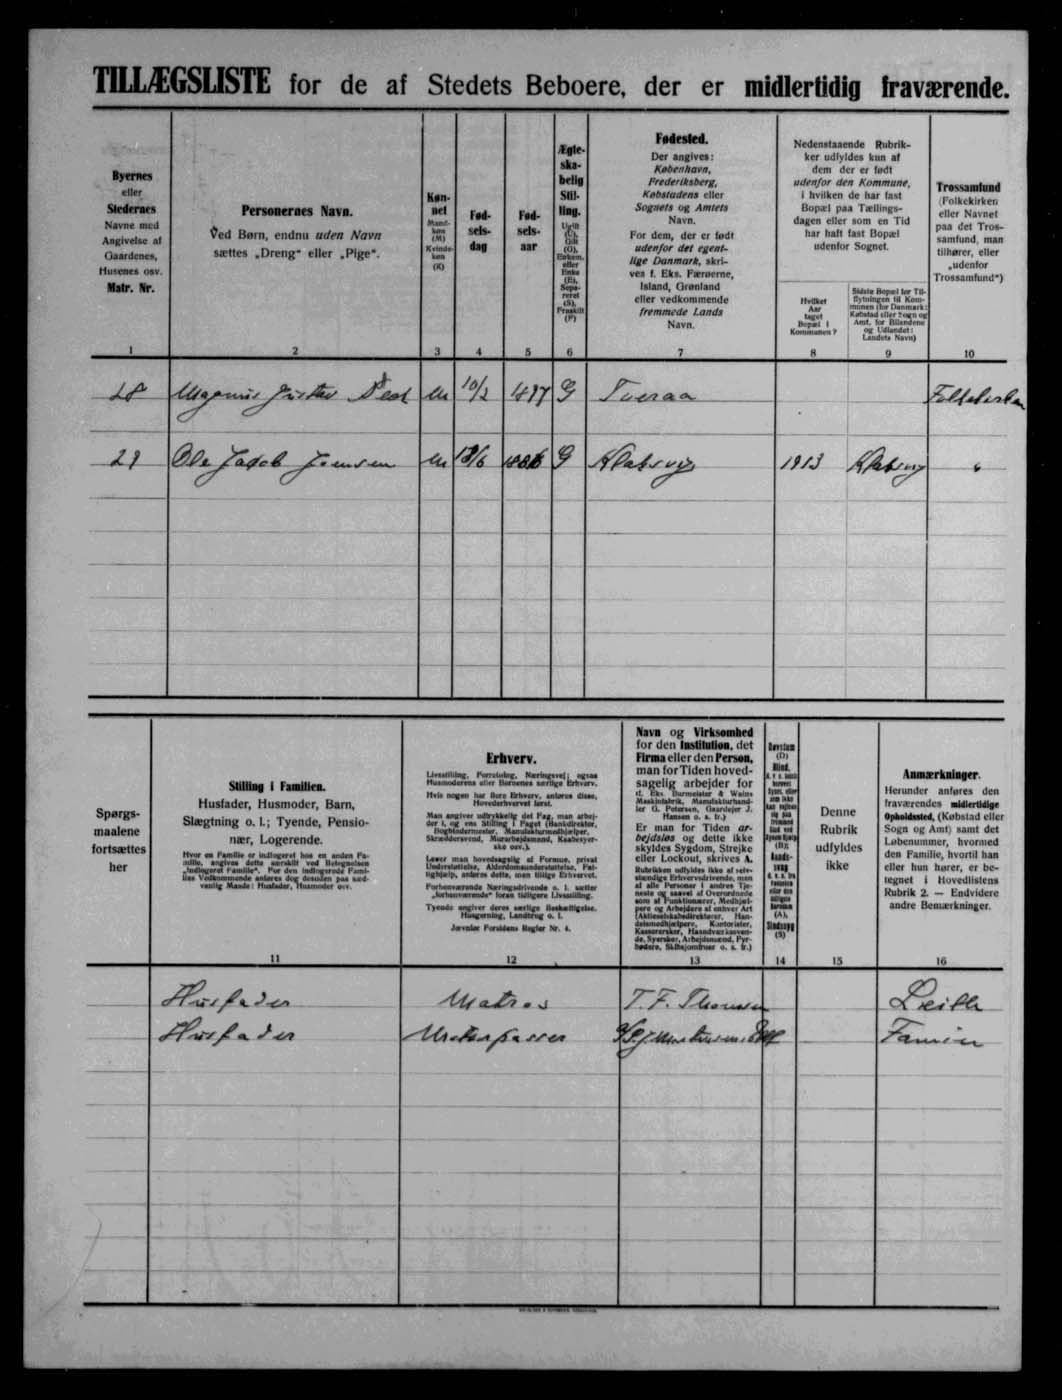 TILLÆGSLISTE for de af Stedets Beboere, der er midlertidig fraværende.
Byernes
eller
Stedernes
Navne med
Angivelse af
Gaardenes,
Husenes osv.
Matr. Nr.
Personernes Navn.
Ved Børn, endnu uden Navn
sættes „Dreng“ eller „Pige“.
Køn-
net
Mand-
køn
(M)
Kvinde-
køn
(K)
Fød-
sels-
dag
Fød-
sels-
aar
Ægte-
ska-
belig
Stil-
ling.
Ugift
(U),
Gift
(G),
Enkem.
eller
Enke
(E),
Sepa-
reret
(S),
Fraskilt
(F)
Fødested.
Der angives:
København,
Frederiksberg,
Købstadens eller
Sognets og Amtets
Navn.
For dem, der er født
udenfor det egent-
lige Danmark, skri-
ves f. Eks. Færøerne,
Island, Grønland
eller vedkommende
fremmede Lands
Navn.
Nedenstaaende Rubrik-
ker udfyldes kun af
dem der er født
udenfor den Kommune,
i hvilken de har fast
Bopæl paa Tællings-
dagen eller som en Tid
har haft fast Bopæl
udenfor Sognet.
Hvilket
Aar
taget
Bopæl i
Kommunen?
Sidste Bopæl før Til-
flytningen til Kom-
munen (for Danmark:
Købstad eller Sogn og
Amt, for Bilandene
og Udlandet:
Landets Navn)
Trossamfund
(Folkekirken
eller Navnet
paa det Tros-
samfund, man
tilhører, eller
„udenfor
Trossamfund“)
1 2 3 4 5 6 7 8 9 10
28 Magnus Gustav M 10/2 1897 G Tveraa Folkekirken
29 Ole Jacob Joensen M /6 G Klaksvig 1913 Klaksvig "
Spørgs-
maalene
fortsættes
her
Stilling i Familien.
Husfader, Husmoder, Barn,
Slægtning o. l.; Tyende, Pensio-
nær, Logerende.
Hvor en Familie er indlogeret hos en anden Fa-
milie, angives dette særskilt ved Betegnelsen
„Indlogeret Familie“. For den indlogerede Fami-
lies Vedkommende anføres dog desuden paa sæd-
vanlig Maade: Husfader, Husmoder osv.
Erhverv.
Livsstilling, Forretning, Næringsvej; ogsaa
Husmoderens eller Børnenes særlige Erhverv.
Hvis nogen har flere Erhverv, anføres disse,
Hovederhvervet først.
Man angiver udtrykkelig det Fag, man arbej-
der i, og ens Stilling i Faget (Bankdirektør,
Bogbindermester, Manufakturmedhjælper,
Skræddersvend, Murarbejdsmand, Kaabesyer-
ske osv.).
Lever man hovedsagelig af Formue, privat
Understøttelse, Alderdomsunderstøttelse, Fat-
tighjælp, anføres dette, men tillige Erhvervet.
Forhenværende Næringsdrivende o. l. sætter
„forhenværende“ foran tidligere Livsstilling.
Tyende angiver deres særlige Beskæftigelse.
Husgerning, Landbrug o. l.
Jævnfør Forsidens Regler Nr. 4.
Navn og Virksomhed
for den Institution, det
Firma eller den Person,
man for Tiden hoved-
sagelig arbejder for
(f. Eks. Burmeister & Wains
Maskinfabrik, Manufakturhand-
ler G. Petersen, Gaardejer J.
Hansen o. s. fr.)
Er man for Tiden ar-
bejdsløs og dette ikke
skyldes Sygdom, Strejke
eller Lockout, skrives A.
Rubrikken udfyldes ikke af selv-
stændige Erhvervsdrivende, men
af alle Personer i andres Tje-
neste og saavel af Overordnede
som af Funktionærer, Medhjæl-
pere og Arbejdere af enhver Art
(Aktieselskabsdirektører, Han-
delsmedhjælpere, Kontorister,
Kassererer, Haandværkssven-
de, Syersker, Arbejdsmænd, Fyr-
bødere, Skibsjomfruer o. s. fr.)
Døvstum
(D)
Blind,
Denne
Rubrik
udfyldes
ikke
Anmærkninger.
Herunder anføres den
fraværendes midlertidige
Opholdssted, (Købstad eller
Sogn og Amt) samt det
Løbenummer, hvormed
den Familie, hvortil han
eller hun hører, er be-
tegnet i Hovedlistens
Rubrik 2. — Endvidere
andre Bemærkninger.
11 12 13 14 15 16
Husfader Matros T. F. Thomsen Leith
Husfader Motorpasser